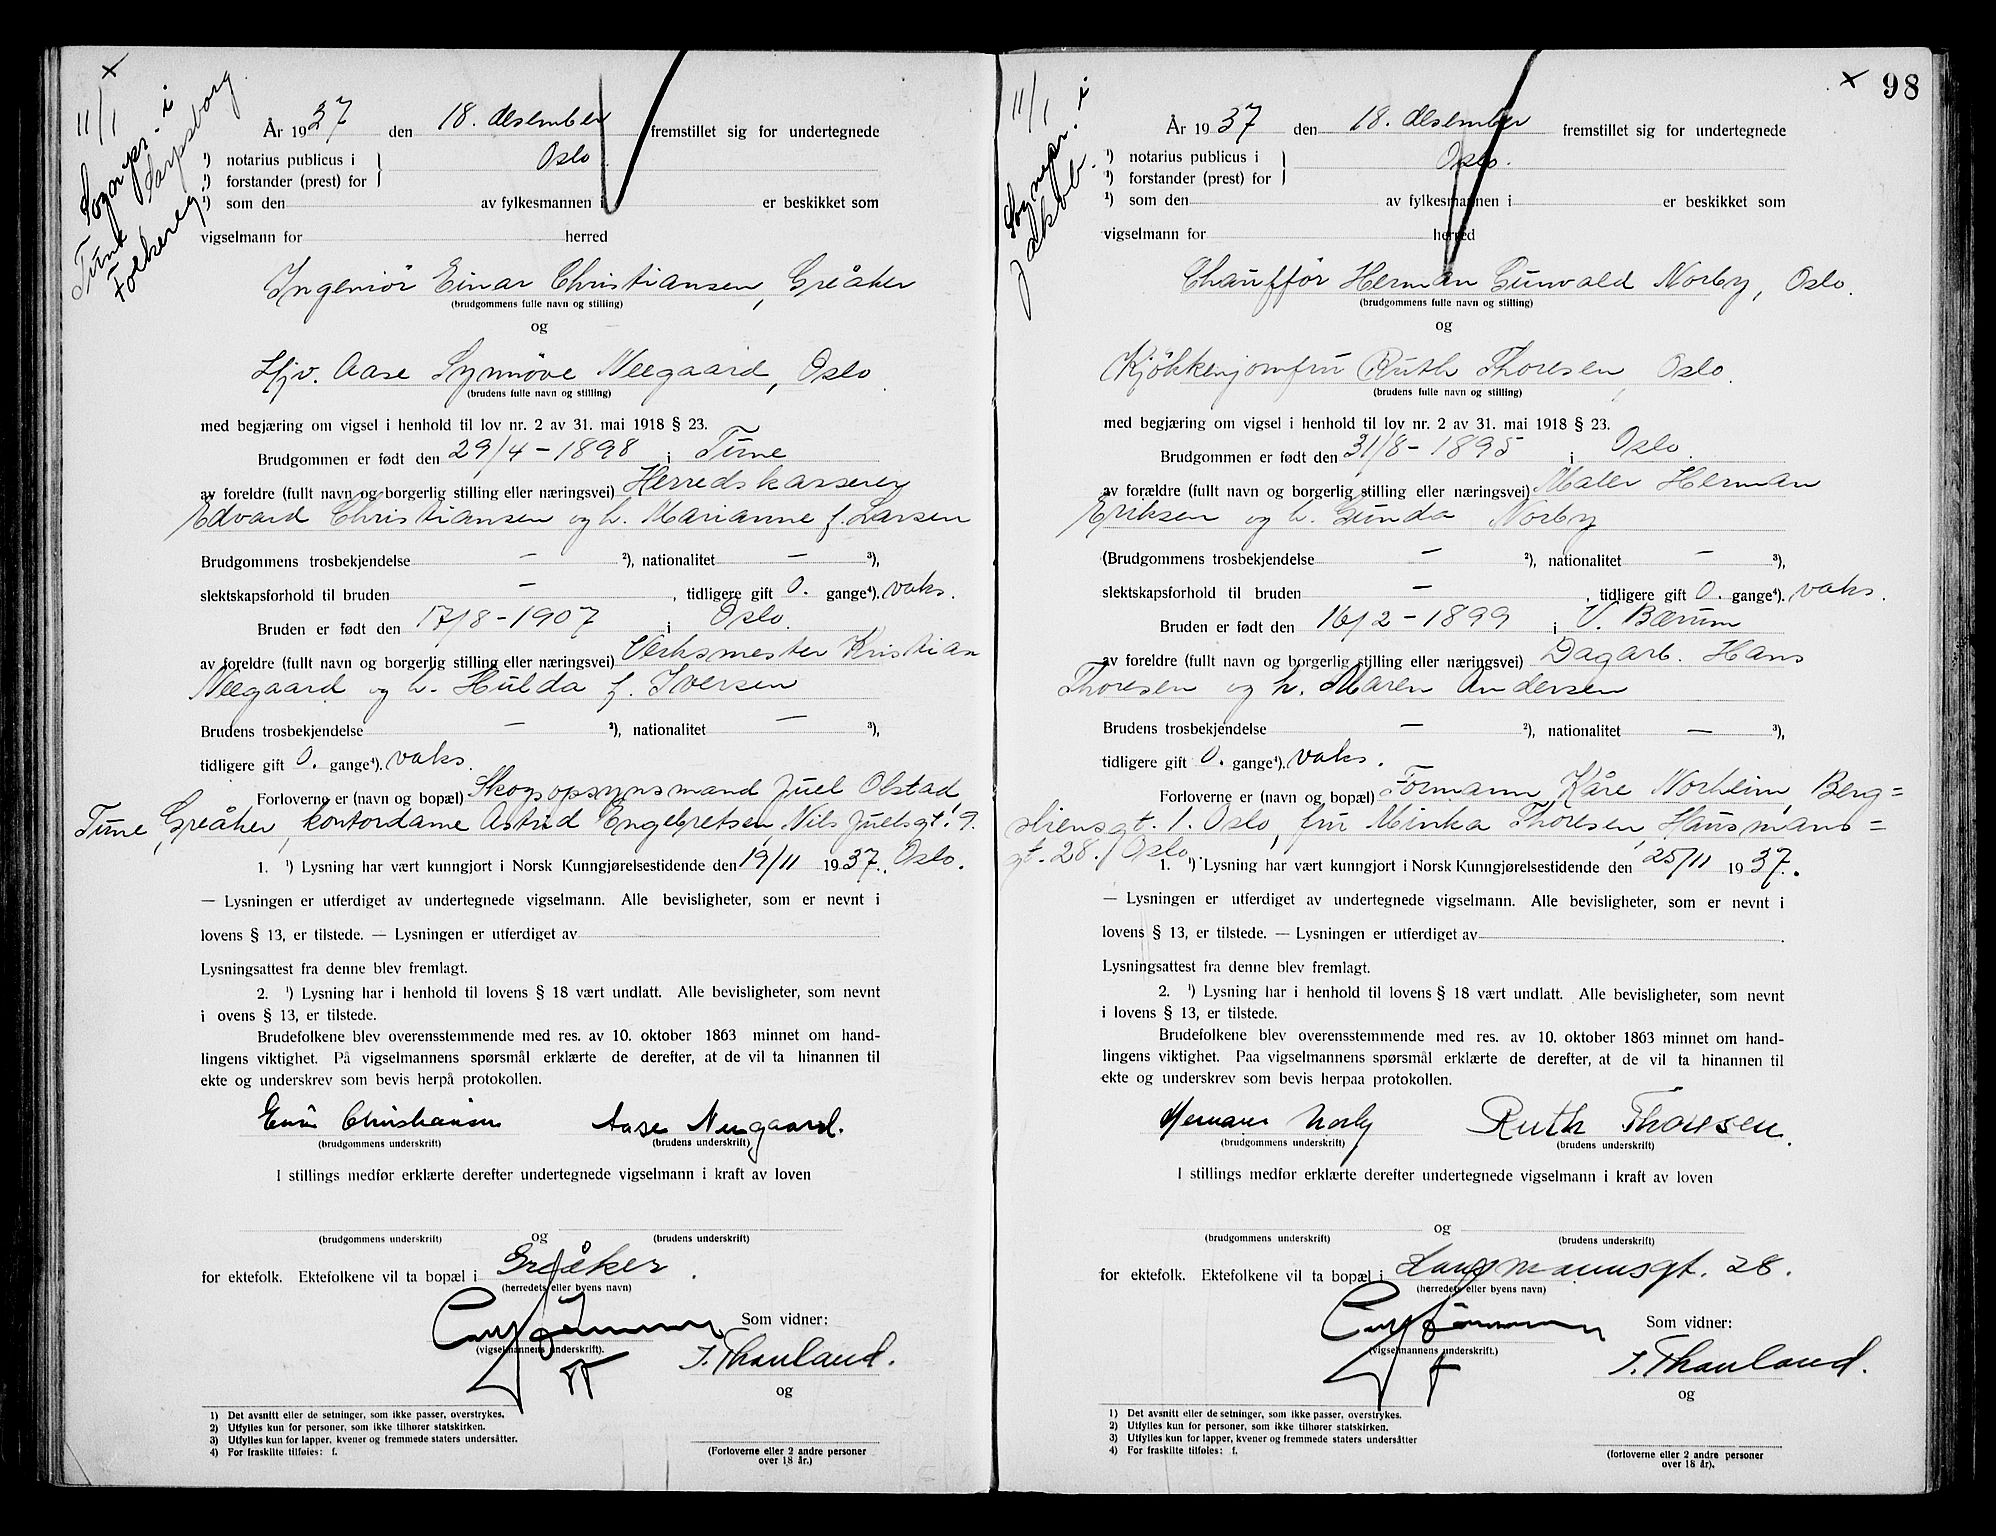 11/1
Sognepr. i
Tune
Sarpsborg
Folkereg.
År 1937 den 18. desember fremstillet sig for undertegnede
¹) notarius publicus i Oslo.
¹) forstander (prest) for
¹) som den av fylkesmannen i er beskikket som
vigselmann for herred
Ingeniör Einar Christiansen, Greåker
(brudgommens fulle navn og stilling)
og
Hjv. Aase Synnöve Neegaard, Oslo.
(brudens fulle navn og stilling)
med begjæring om vigsel i henhold til lov nr. 2 av 31. mai 1918 § 23.
Brudgommen er født den 29/4 - 1898 i Tune
av foreldre (fullt navn og borgerlig stilling eller næringsvei) Herredskasserer
Edvard Christiansen og h. Marianne f. Larsen
Brudgommens trosbekjendelse - ²), nationalitet - ³),
slektskapsforhold til bruden - , tidligere gift 0. gange⁴). vaks.
Bruden er født den 17/8 - 1907 i Oslo.
av foreldre (fullt navn og borgerlig stilling eller næringsvei) Verksmester Kristian
Neegaard og h. Hulda f. Iversen
Brudens trosbekjendelse - ²), nationalitet - ³),
tidligere gift 0. gange⁴). vaks.
Forloverne er (navn og bopæl) Skogsopsynsmand Juel Olstad,
Tune, Greåker, kontordame Astrid Engebretsen, Nils Juelsgt. 9.
1. ¹) Lysning har vært kunngjort i Norsk Kunngjørelsestidende den 19/11 1937. Oslo.
— Lysningen er utferdiget av undertegnede vigselmann. Alle bevisligheter, som er nevnt i
lovens § 13, er tilstede. — Lysningen er utferdiget av
Lysningsattest fra denne blev fremlagt.
2. ¹) Lysning har i henhold til lovens § 18 vært undlatt. Alle bevisligheter, som nevnt
i ovens § 13, er tilstede.
Brudefolkene blev overensstemmende med res. av 10. oktober 1863 minnet om hand-
lingens viktighet. På vigselmannens spørsmål erklærte de derefter, at de vil ta hinannen til
ekte og underskrev som bevis herpå protokollen.
Einar Christiansen Aase Neegaard.
(brudgommens underskrift) (brudens underskrift)
I stillings medfør erklærte derefter undertegnede vigselmann i kraft av loven
og
(brudgommens underskrift) (brudens underskrift)
for ektefolk. Ektefolkene vil ta bopæl i Greåker.
(herredets eller byens navn)
Som vidner:
(vigselmannens underskrift).
I. Thauland.
og
1) Det avsnitt eller de setninger, som ikke passer, overstrykes.
2) Utfylles kun for personer, som ikke tilhører statskirken.
3) Utfylles kun for lapper, kvener og fremmede staters undersåtter.
4) For fraskilte tilføies: f.
(Forloverne eller 2 andre personer
over 18 år.)
98
11/1
Sognepr. i
Jakob.
År 1937 den 18. desember fremstillet sig for undertegnede
¹) notarius publicus i Oslo.
¹) forstander (prest) for
¹) som den av fylkesmannen i er beskikket som
vigselmann for herred
Chauffør Herman Gunvald Norby, Oslo.
(brudgommens fulle navn og stilling)
og
Kjökkenjomfru Ruth Thoresen, Oslo.
(brudens fulle navn og stilling)
med begjæring om vigsel i henhold til lov nr. 2 av 31. mai 1918 § 23.
Brudgommen er født den 31/8 - 1895 i Oslo.
av forældre (fullt navn og borgerlig stilling eller næringsvei) Maler Herman
Eriksen og h. Gunda Norby
(Brudgommens trosbekjendelse - ²), nationalitet - ³),
slektskapsforhold til bruden - , tidligere gift 0. gange⁴). vaks.
Bruden er født den 16/2 - 1899 i V. Bærum
av foreldre (fullt navn og borgerlig stilling eller næringsvei) Dagarb. Hans
Thoresen og h. Maren Andersen
Brudens trosbekjendelse - ²), nationalitet - ³),
tidligere gift 0. gange⁴). vaks.
Forloverne er (navn og bopæl) Formann Kåre Norheim, Berg=
sliensgt. 1. Oslo, fru Minka Thoresen, Hausmans=
gt. 28. Oslo.
1. ¹) Lysning har vært kunngjort i Norsk Kunngjørelsestidende den 25/11 1937.
— Lysningen er utferdiget av undertegnede vigselmann. Alle bevisligheter, som er nevnt i
lovens § 13, er tilstede. — Lysningen er utferdiget av
Lysningsattest fra denne blev fremlagt.
2. ¹) Lysning har i henhold til lovens § 18 vært undlatt. Alle bevisligheter, som nevnt
i lovens § 13, er tilstede.
Brudefolkene blev overensstemmende med res. av 10. oktober 1863 minnet om hand-
lingens viktighet. Paa vigselmannens spørsmål erklærte de derefter, at de vil ta hinannen til
ekte og underskrev som bevis herpaa protokollen.
Herman Norby Ruth Thoresen.
(brudgommens underskrift) (brudens underskrift)
I stillings medfør erklærte derefter undertegnede vigselmann i kraft av loven
og
(brudgommens underskrift) (brudens underskrift)
for ektefolk. Ektefolkene vil ta bopæl i Hausmannsgt. 28.
(herredets eller byens navn)
Som vidner:
(vigselmannens underskrift.)
I. Thauland.
og
1) Det avsnitt eller de setninger, som ikke passer, overstrykes.
2) Utfylles kun for personer, som ikke tilhører statskirken.
3) Utfylles kun for lapper, kvener og fremmede staters undersåtter
4) For fraskilte tilføies: f.
(forloverne eller 2 andre personer
over 18 år).